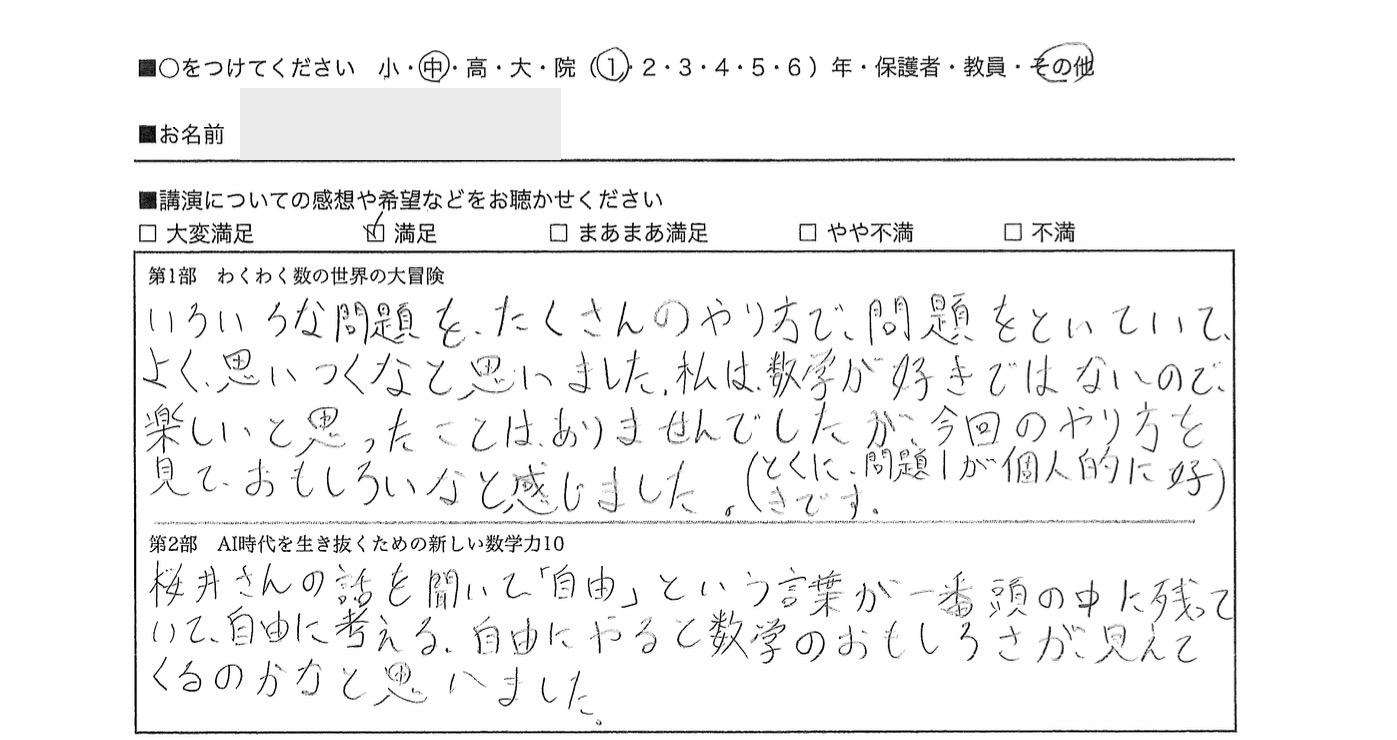 ■○をつけてください 小・中・高・大・院（1・2・3・4・5・6）年・保護者・教員・その他
■お名前
■講演についての感想や希望などをお聴かせください
□ 大変満足 ☑ 満足 □ まあまあ満足 □ やや不満 □ 不満
第1部 わくわく数の世界の大冒険
いろいろな問題を、たくさんのやり方で、問題をといていて、
よく、思いつくなと思いました。私は、数学が好きではないので、
楽しいと思ったことは、ありませんでしたが、今回のやり方を
見て、おもしろいなと感じました。（とくに、問題1が個人的に好
きです。）
第2部 AI時代を生き抜くための新しい数学力10
桜井さんの話を聞いて「自由」という言葉が一番頭の中に残って
いて、自由に考える、自由にやると数学のおもしろさが、見えて
くるのかなと思いました。